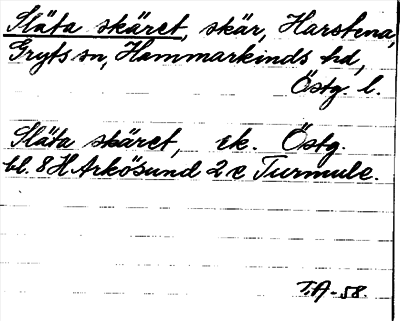 Släta skäret, skär, Harstena,
Gryts sn, Hammarkinds hd,
Östg. l.
Släta skäret, ek. Östg.
bl. 8 H Arkösund 2 e Turmule.
T.A-58.